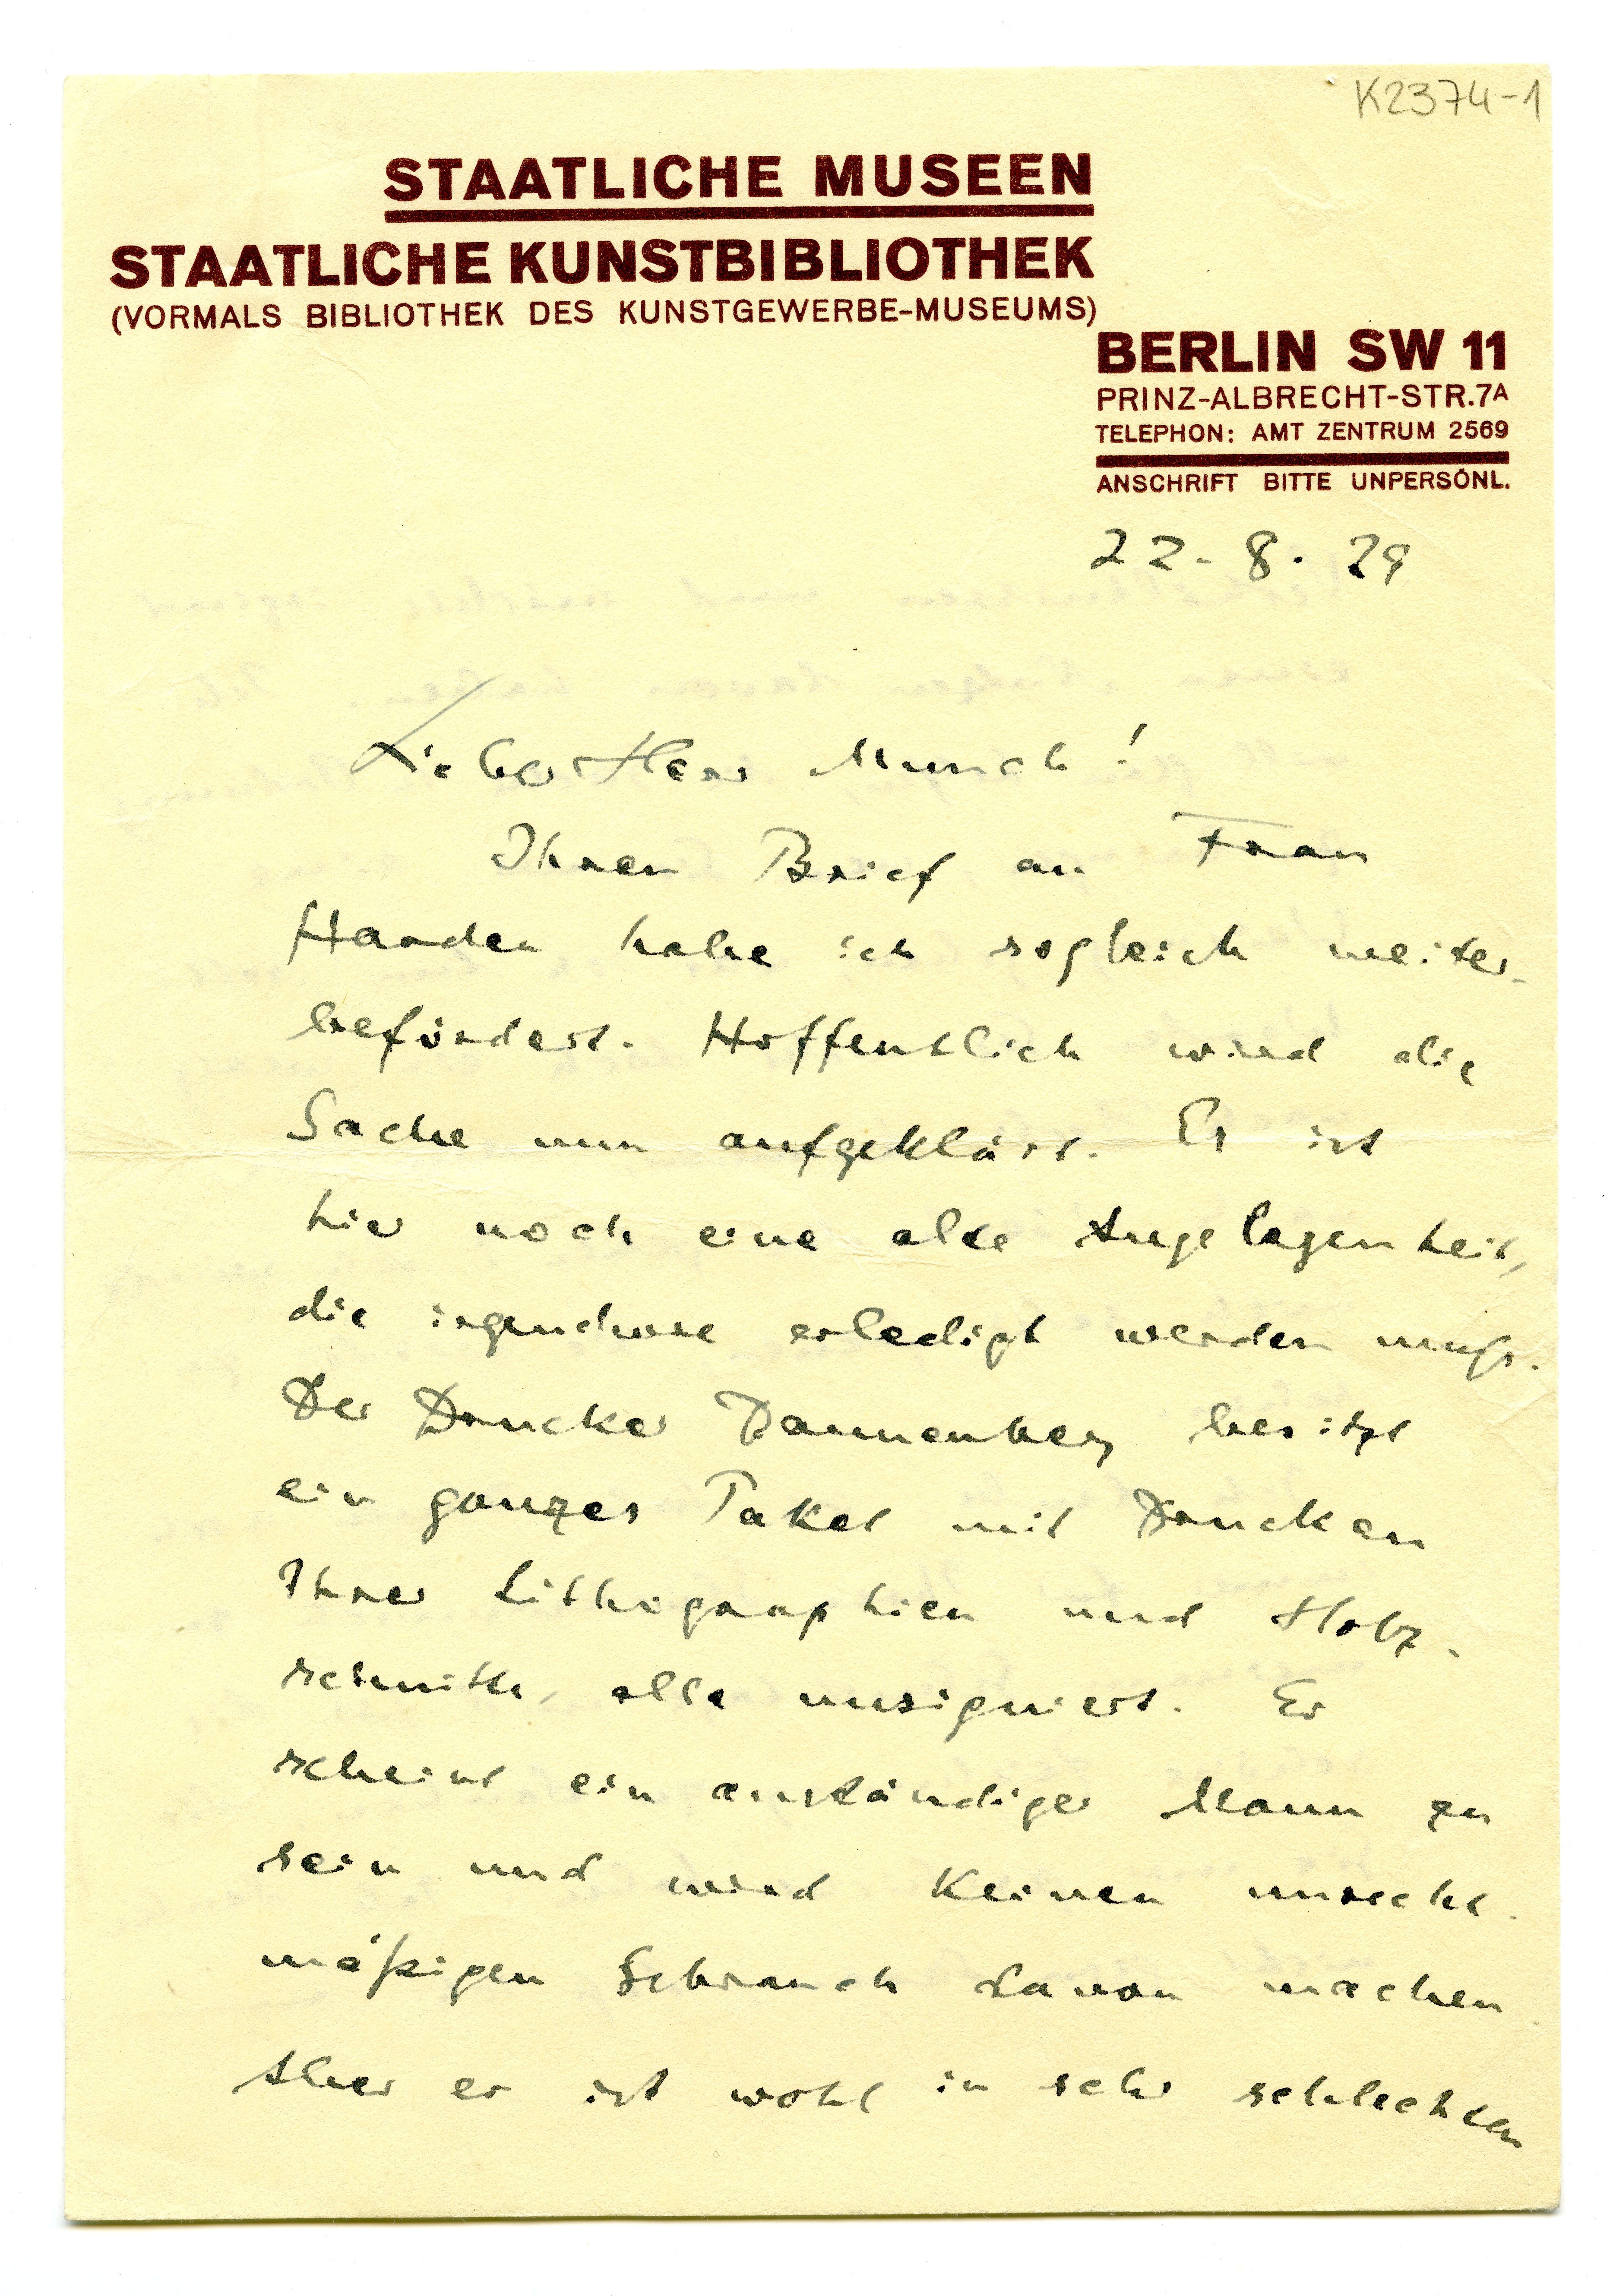 K2374-1
STAATLICHE MUSEEN
STAATLICHE KUNSTBIBLIOTHEK
(VORMALS BIBLIOTHEK DES KUNSTGEWERBE-MUSEUMS)
BERLIN SW 11
PRINZ-ALBRECHT-STR.7A
TELEPHON: AMT ZENTRUM 2569
ANSCHRIFT BITTE UNPERSÖNL.
22. 8. 29
Lieber Herr Munch!
Ihren Brief an Frau
Harden habe ich sogleich weiter-
befördert. Hoffentlich wird die
Sache nun aufgeklärt. Es ist
hier noch eine alte Angelegenheit,
die irgendwie erledigt werden muß.
Der Drucker Dannenberg besitzt
ein ganzes Paket mit Drucken
Ihrer Lithographien und Holz-
schnitte, alle unsigniert. Er
scheint ein anständiger Mann zu
sein und wird keinen unrecht-
mäßigen Gebrauch davon machen
Aber er ist wohl in sehr schlechten